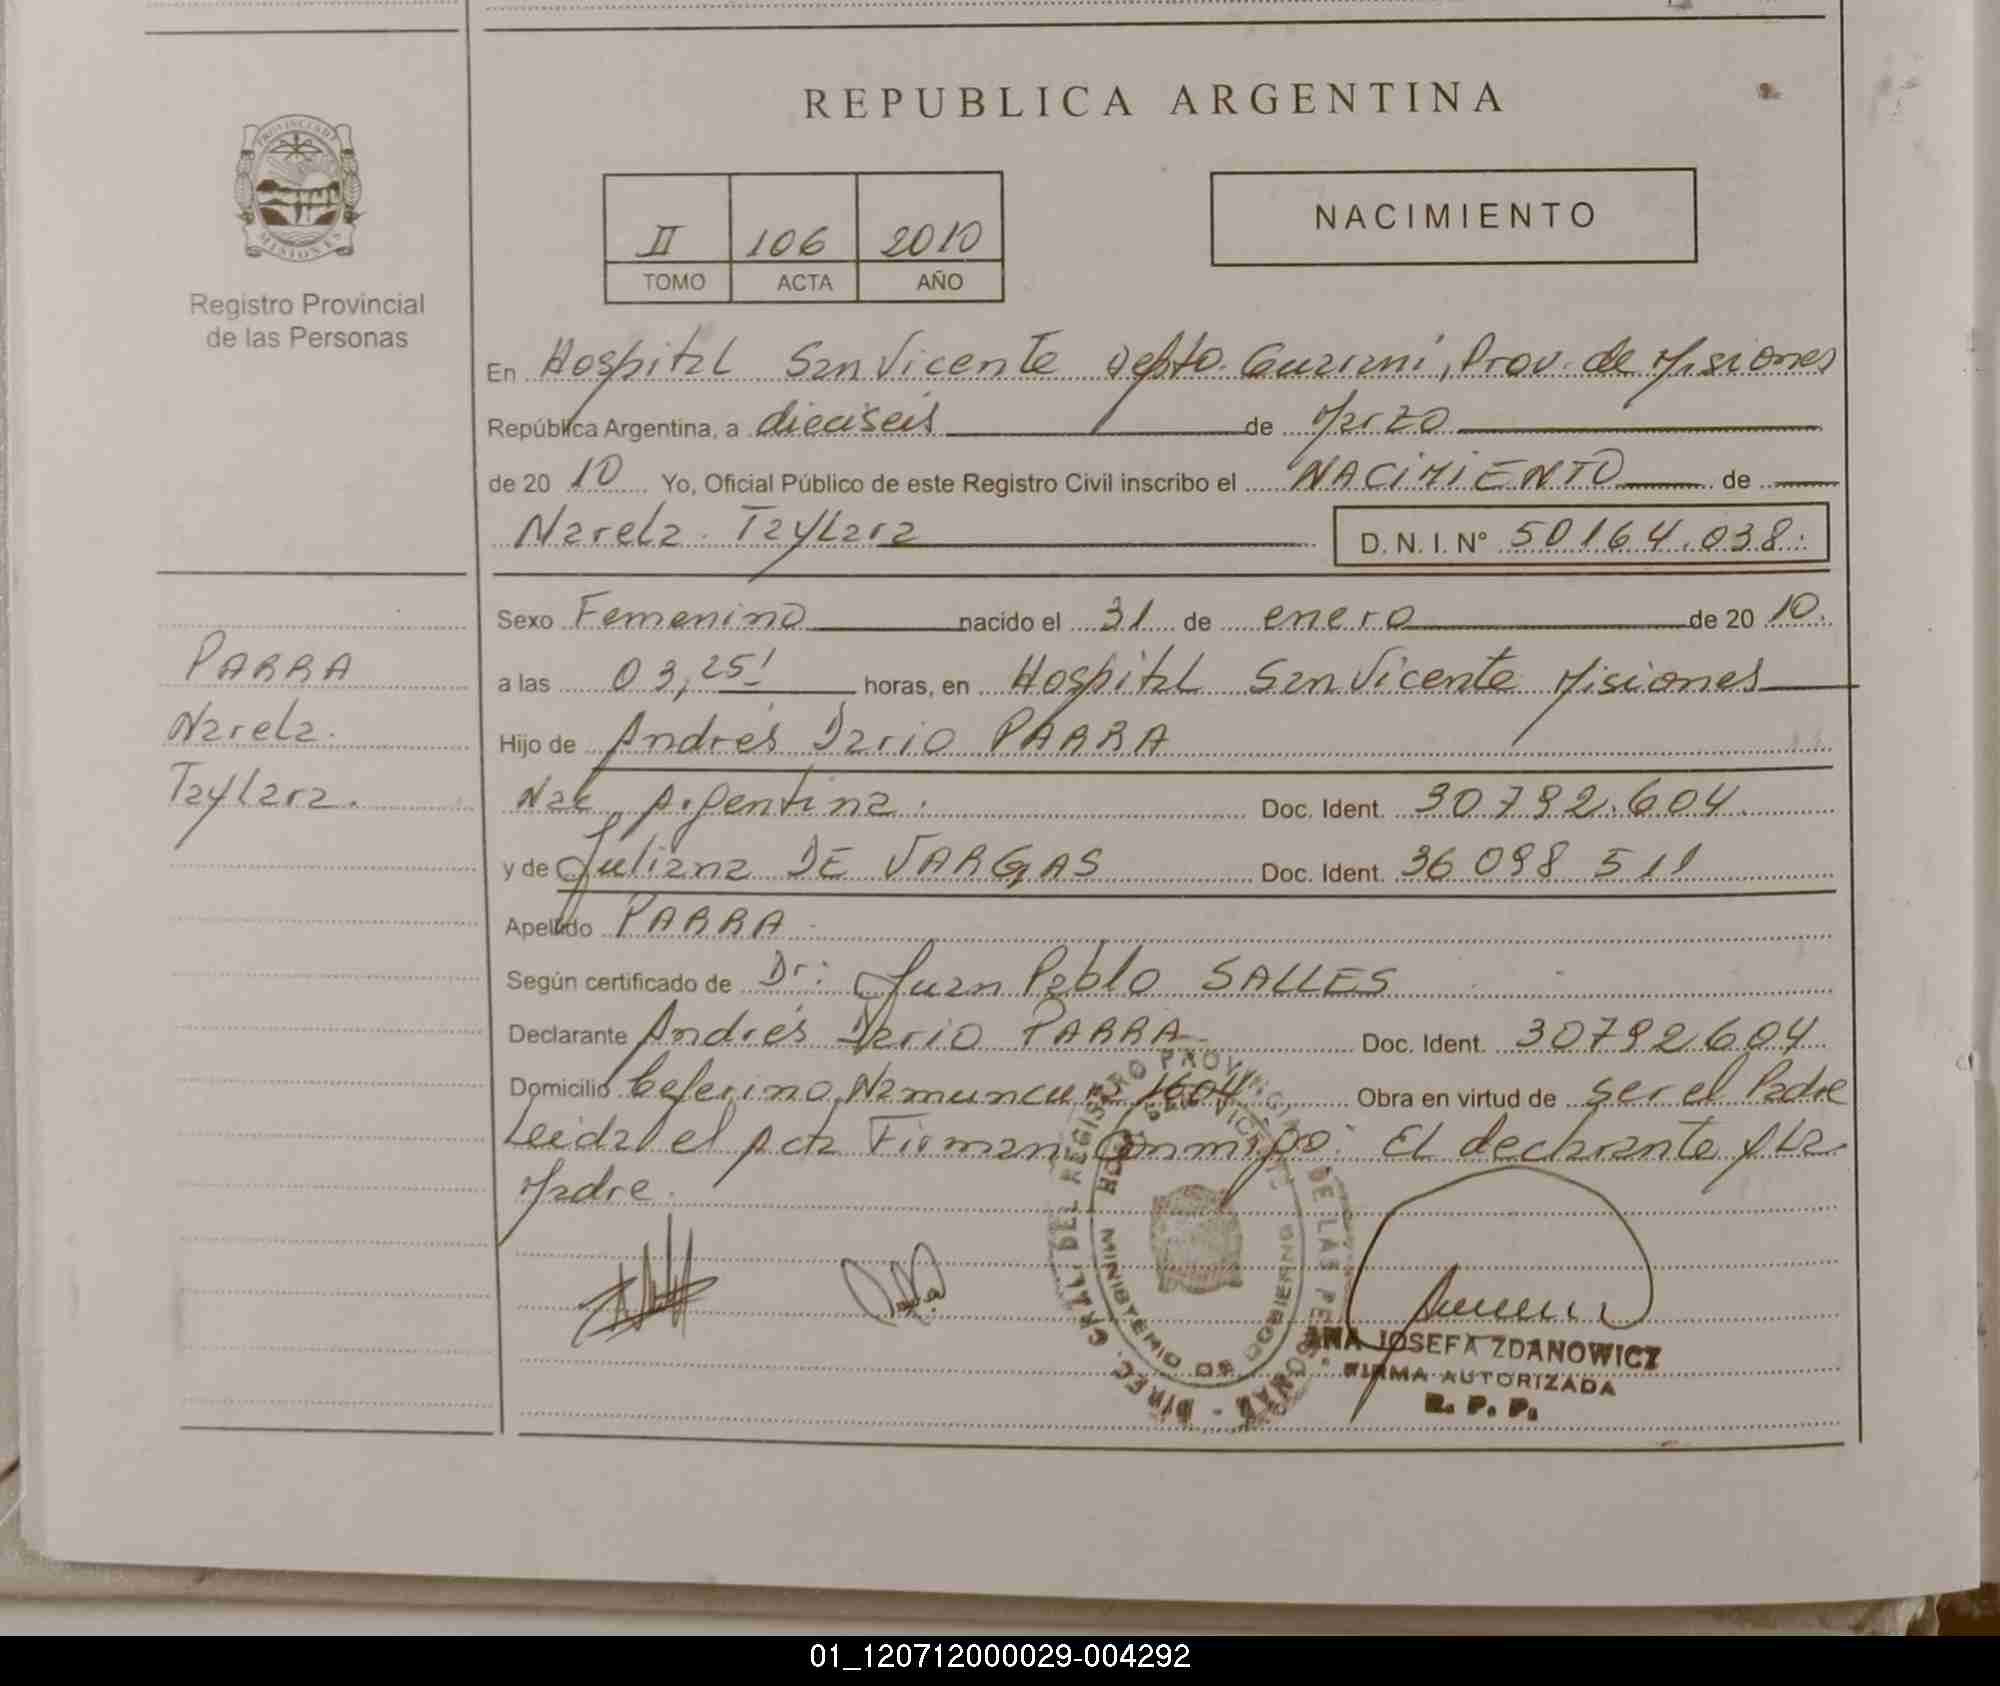 REPUBLICA ARGENTINA
PROVINCIA DE MISIONES
Registro Provincial
de las Personas
II 106 2010
TOMO ACTA AÑO
NACIMIENTO
En Hospital San Vicente Depto. Guarani, Prov. de Misiones
República Argentina, a dieciseis de Marzo
de 20 10 Yo, Oficial Público de este Registro Civil inscribo el NACIMIENTO de
Narela Taylara D. N. I. Nº 50164.038
Sexo Femenino nacido el 31 de enero de 20 10
a las 03,25' horas, en Hospital San Vicente Misiones
Hijo de Andrés Dario PARRA
Nac Argentina. Doc. Ident. 30792.604
y de Juliana DE VARGAS Doc. Ident. 36098 511
Apellido PARRA
Según certificado de Dr: Juan Pablo SALLES
Declarante Andrés Dario PARRA Doc. Ident. 30792604
Domicilio Ceferino Namuncura 1604 Obra en virtud de ser el Padre
Leida el Acta Firman Conmigo: El declarante y La
Madre.
PARRA
Narela
Taylara.
DIREC. GRAL. DEL REGISTRO PROVINCIAL DE LAS PERSONAS
MINISTERIO DE GOBIERNO
ANA JOSEFA ZDANOWICZ
FIRMA AUTORIZADA
R. P. P.
01_120712000029-004292